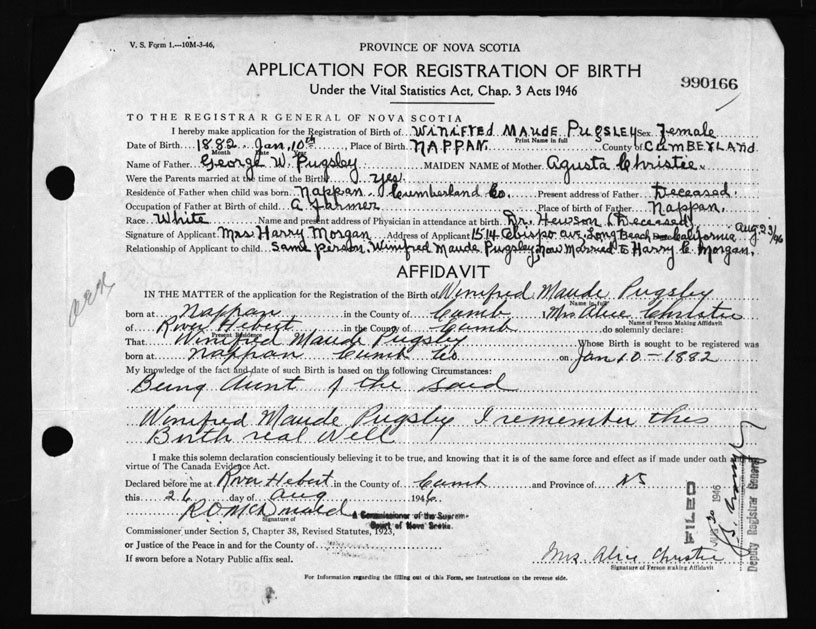 V. S. Form 1.—10M-3-46,
PROVINCE OF NOVA SCOTIA
APPLICATION FOR REGISTRATION OF BIRTH
990166
Under the Vital Statistics Act, Chap. 3 Acts 1946
TO THE REGISTRAR GENERAL OF NOVA SCOTIA
I hereby make application for the Registration of Birth of Winifred Maude Pugsley Sex Female
Print Name in full
Date of Birth 1882 Jan. 10th Place of Birth NAPPAN County of CUMBERLAND
Month Date Year
Name of Father George W. Pugsley MAIDEN NAME of Mother Agusta Christie
Were the Parents married at time of the Birth? yes
Residence of Father when child was born Nappan. Cumberland Co. Present address of Father Deceased.
Occupation of Father at Birth of child A farmer Place of Birth of Father Nappan.
Race White Name and present address of Physician in attendance at birth Dr. Hewson (Deceased)
Signature of Applicant Mrs Harry Morgan Address of Applicant 1514 Obispo ave, Long Beach California Aug 23/46
Relationship of Applicant to child same person. Winifred Maude Pugsley, now Married to Harry C. Morgan.
AFFIDAVIT
IN THE MATTER of the application for the Registration of the Birth of Winifred Maude Pugsley
Name in full
born at Nappan in the County of Cumb I Mrs Alice Christie
Name of Person Making Affidavit
of River Hebert in the County of Cumb do solemnly declare:
Present Residence
That Winifred Maude Pugsley Whose Birth is sought to be registered was
born at Nappan Cumb Co on Jan 10 - 1882
My knowledge of the fact and date of such Birth is based on the following Circumstances:
Being Aunt of the said
Winifred Maude Pugsley I remember this
Birth real well
I make this solemn declaration conscientiously believing it to be true, and knowing that it is of the same force and effect as if made under oath
virtue of The Canada Evidence Act.
Declared before me at River Hebert in the County of Cumb and Province of NS
this 26 day of Aug 1946.
R.O. McDonald
Signature of
A Commissioner of the Supreme
Court of Nova Scotia.
Commissioner under Section 5, Chapter 38, Revised Statutes, 1923,
or Justice of the Peace in and for the County of
If sworn before a Notary Public affix seal.
Mrs. Alice Christie
Signature of Person making Affidavit
For Information regarding the filling out of this Form, see Instructions on the reverse side.
FILED
1946
Deputy Registrar General